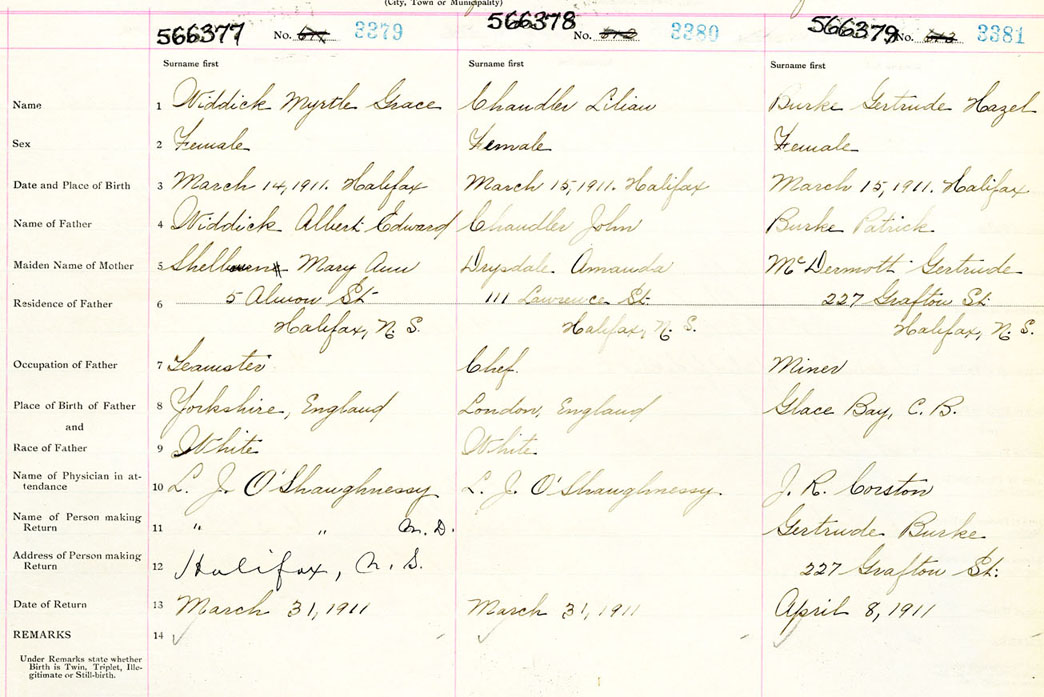 (City, Town or Municipality)
566377 No. 3379 566378 No. 3380 566379 No. 3381
Surname first Surname first Surname first
Name 1 Widdick Myrtle Grace Chandler Lilian Burke Gertrude Hazel
Sex 2 Female Female Female
Date and Place of Birth 3 March 14, 1911. Halifax March 15, 1911. Halifax March 15, 1911. Halifax
Name of Father 4 Widdick Albert Edward Chandler John Burke Patrick
Maiden Name of Mother 5 Mary Ann Drysdale Amanda McDermott Gertrude
Residence of Father 6 5 Almon St. 111 Lawrence St. 227 Grafton St.
Halifax, N. S. Halifax, N. S. Halifax, N. S.
Occupation of Father 7 Teamster Chef. Miner
Place of Birth of Father 8 Yorkshire, England London, England Glace Bay, C. B.
and
Race of Father 9 White White
Name of Physician in at-
tendance 10 L. J. O'Shaughnessy L. J. O'Shaughnessy. J. R. Corston
Name of Person making
Return 11 " " M. D. Gertrude Burke
Address of Person making
Return 12 Halifax, N. S. 227 Grafton St.
Date of Return 13 March 31, 1911 March 31, 1911 April 8, 1911
REMARKS 14
Under Remarks state whether
Birth is Twin, Triplet, Ille-
gitimate or Still-birth.